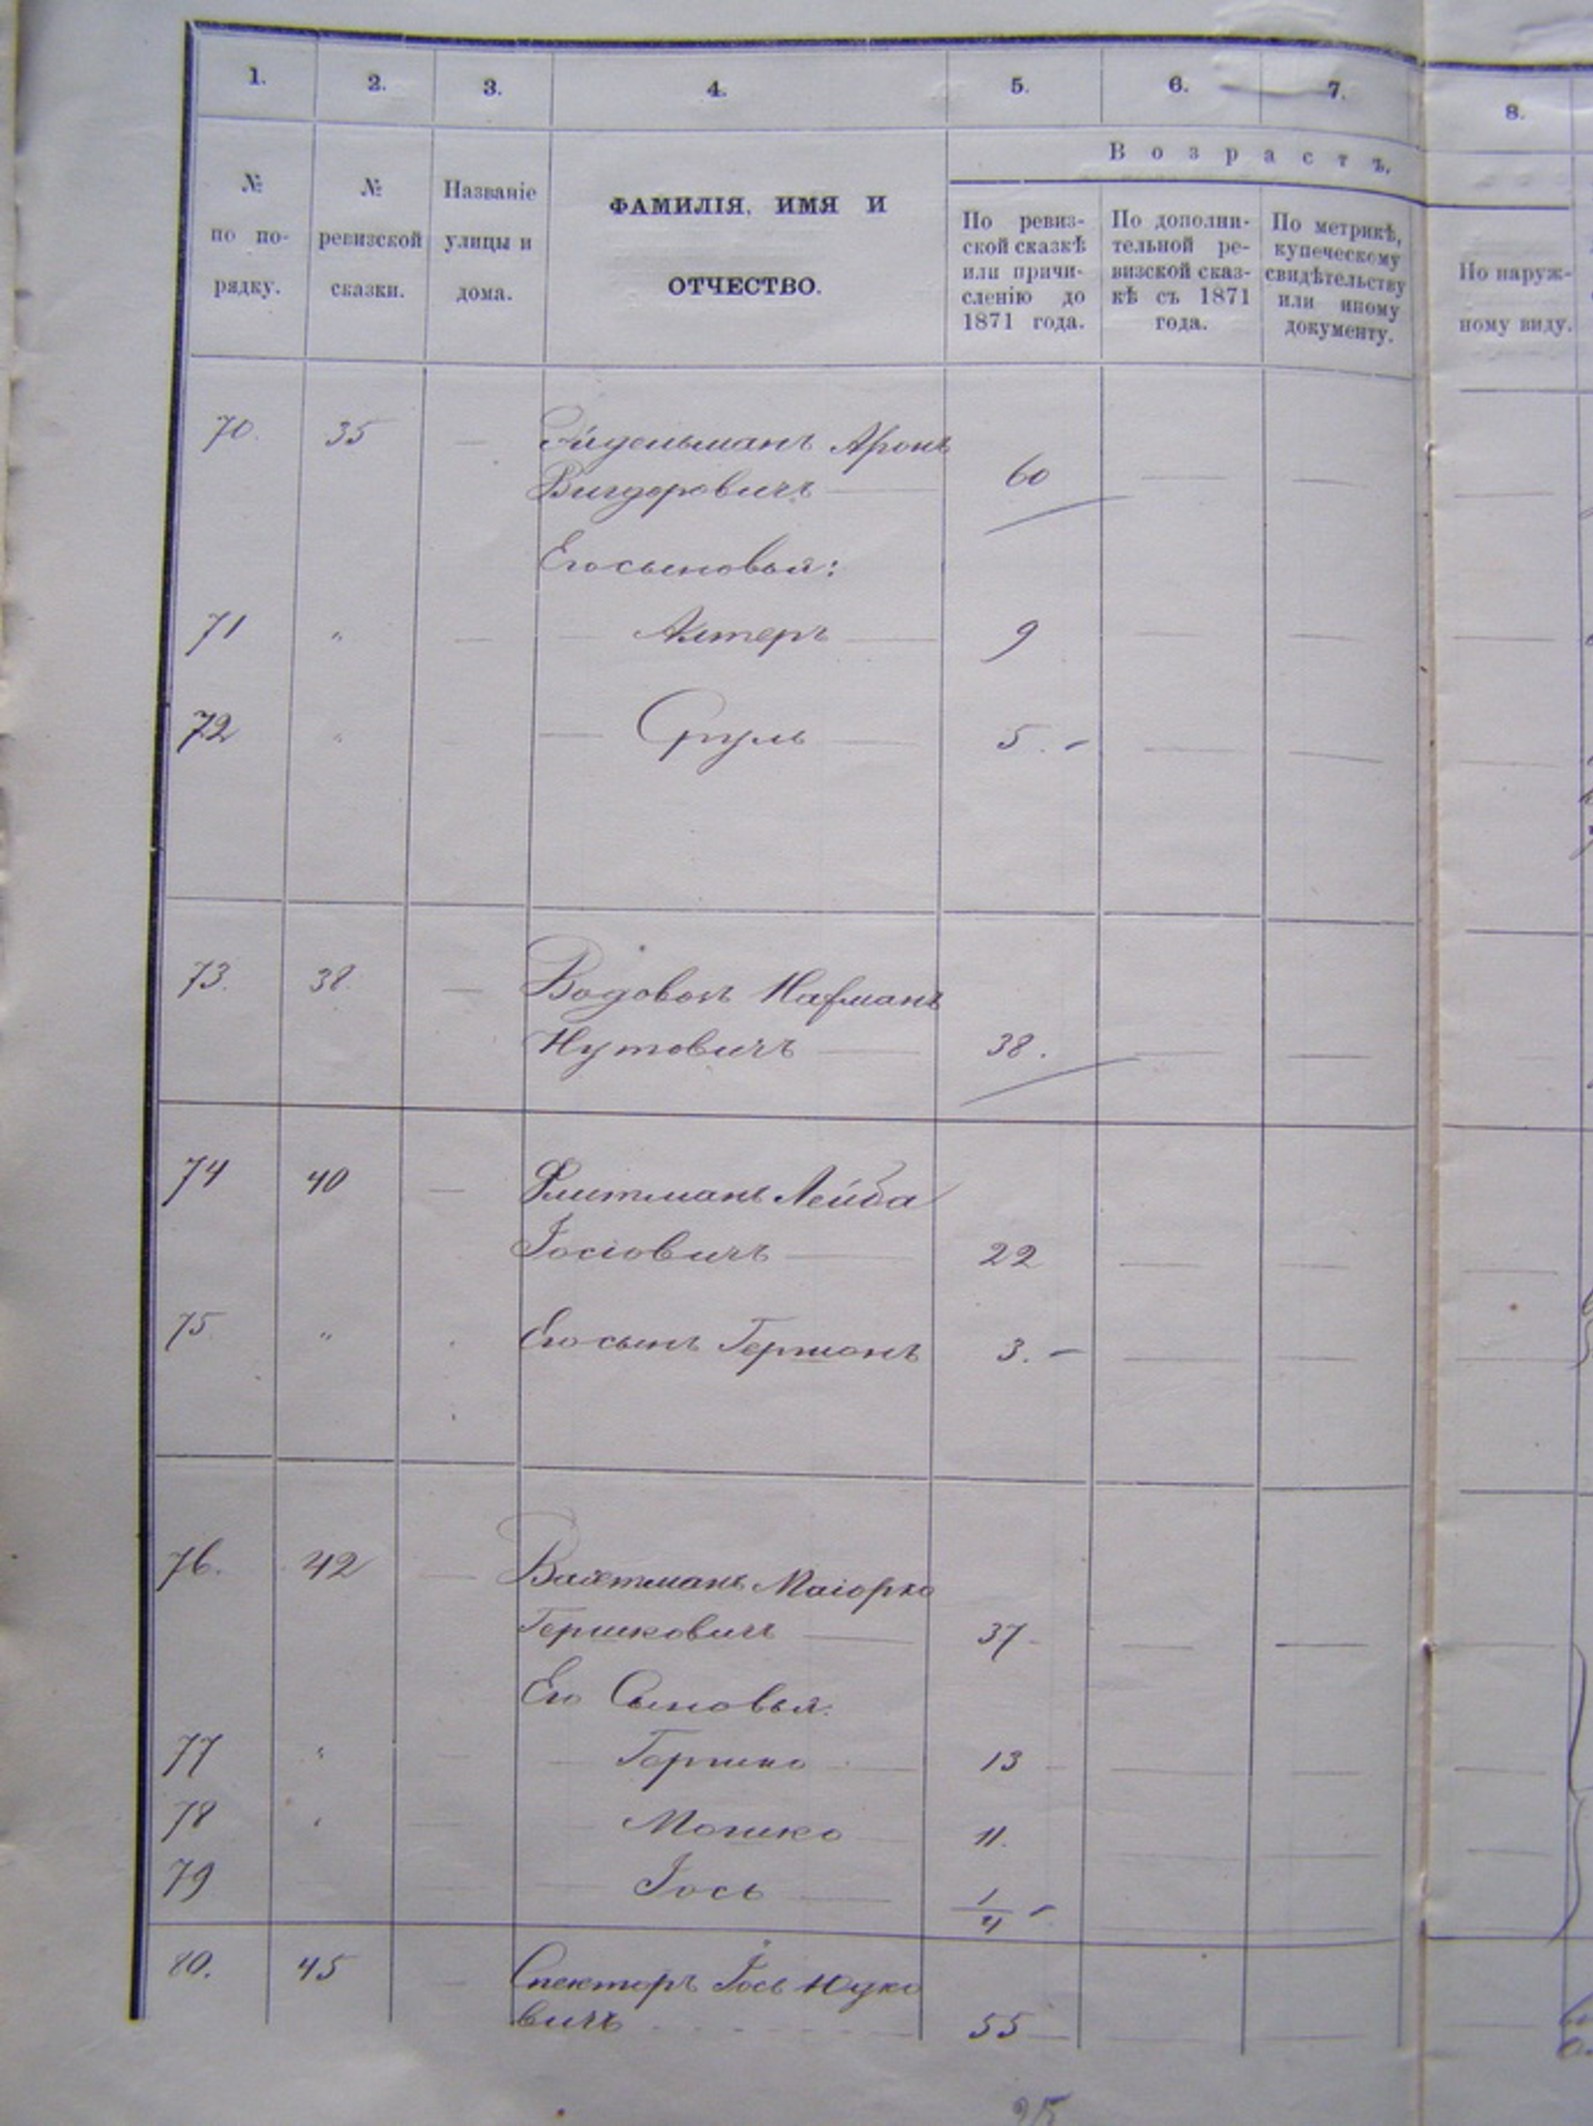 1. 2. 3. 4. 5. 6. 7. 8.
В о з р а с т ъ.
№ по по- рядку.
№ ревизской сказки.
Названіе улицы и дома.
ФАМИЛІЯ, ИМЯ И
ОТЧЕСТВО.
По ревиз-
ской сказкѣ
или причи-
сленію до
1871 года.
По дополни-
тельной ре-
визской сказ-
кѣ съ 1871
года.
По метрикѣ,
купеческому
свидѣтельству
или иному
документу.
По наруж-
ному виду.
70. 35 — Эйдельманъ Аронъ
Вигдоровичъ — 60 — —
Его сыновья:
71 " — — Алтеръ — 9 —
72 " — — Сруль — 5. — — —
73. 38. — Водовозъ Нахманъ
Нутовичъ — 38. — —
74 40 — Флитманъ Лейба
Іосіовичъ — 22 — —
75 " Его сынъ Гершонъ 3. — — —
76. 42 — Вайтманъ Маіорко
Гершковичъ — 37 — —
Его Сыновья:
77 " — — Гершко — 13 — —
78 " — Мошко 11.
79 — Іось — 1/4 —
80. 45 — Спекторъ Іось Юдко
вичъ 55 — — —